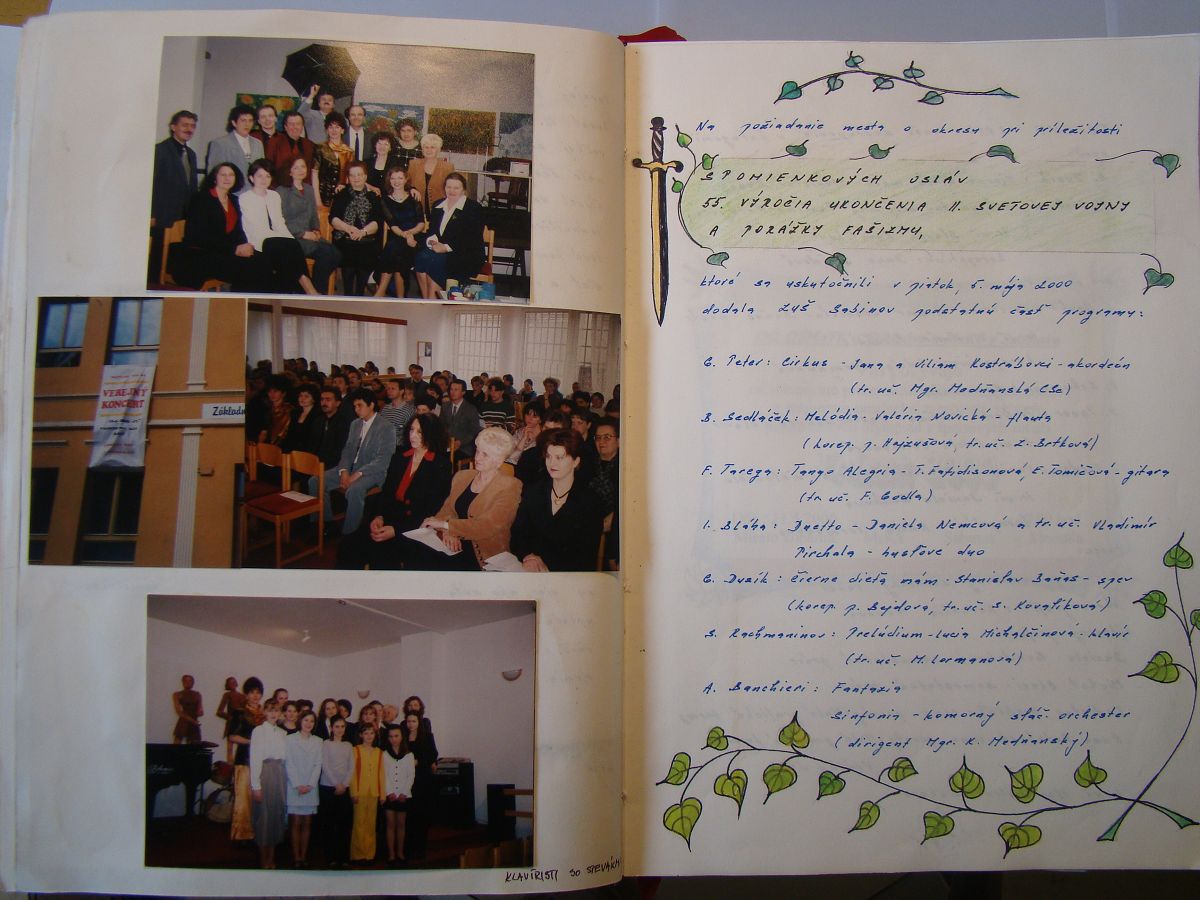 VEREJNÝ
KONCERT
Základn
KLAVIRISTI SO SPEVÁKMI
Na požiadanie mesta a okresu pri príležitosti
SPOMIENKOVÝCH OSLÁV
55. VÝROČIA UKONČENIA II. SVETOVEJ VOJNY
A PORÁŽKY FAŠIZMU,
ktoré sa uskutočnili v piatok, 5. mája 2000
dodala ZUŠ Sabinov podstatnú časť programu:
G. Peter: Cirkus - Jana a Viliam Kostrábovci - akordeón
(tr. uč. Mgr. Medňanská CSc)
B. Sedláček: Melódia - Valéria Novická - flauta
(korep. p. Hajzušová, tr. uč. Z. Brtková)
F. Tarega: Tango Alegria - T. Fafidisonová, E. Tomičová - gitara
(tr. uč. F. Godla)
I. Bláha: Duetto - Daniela Nemcová a tr. uč. Vladimír
Pirchala - husľové duo
G. Dusík: Čierne dieťa mám - Stanislav Baňas - spev
(korep. p. Bajdová, tr. uč. S. Kovaliková)
S. Rachmaninov: Prelúdium - Lucia Michalčinová - klavír
(tr. uč. M. Lormanová)
A. Banchieri: Fantazia
Sinfonia - komorný sláč. orchester
(dirigent Mgr. K. Medňanský)